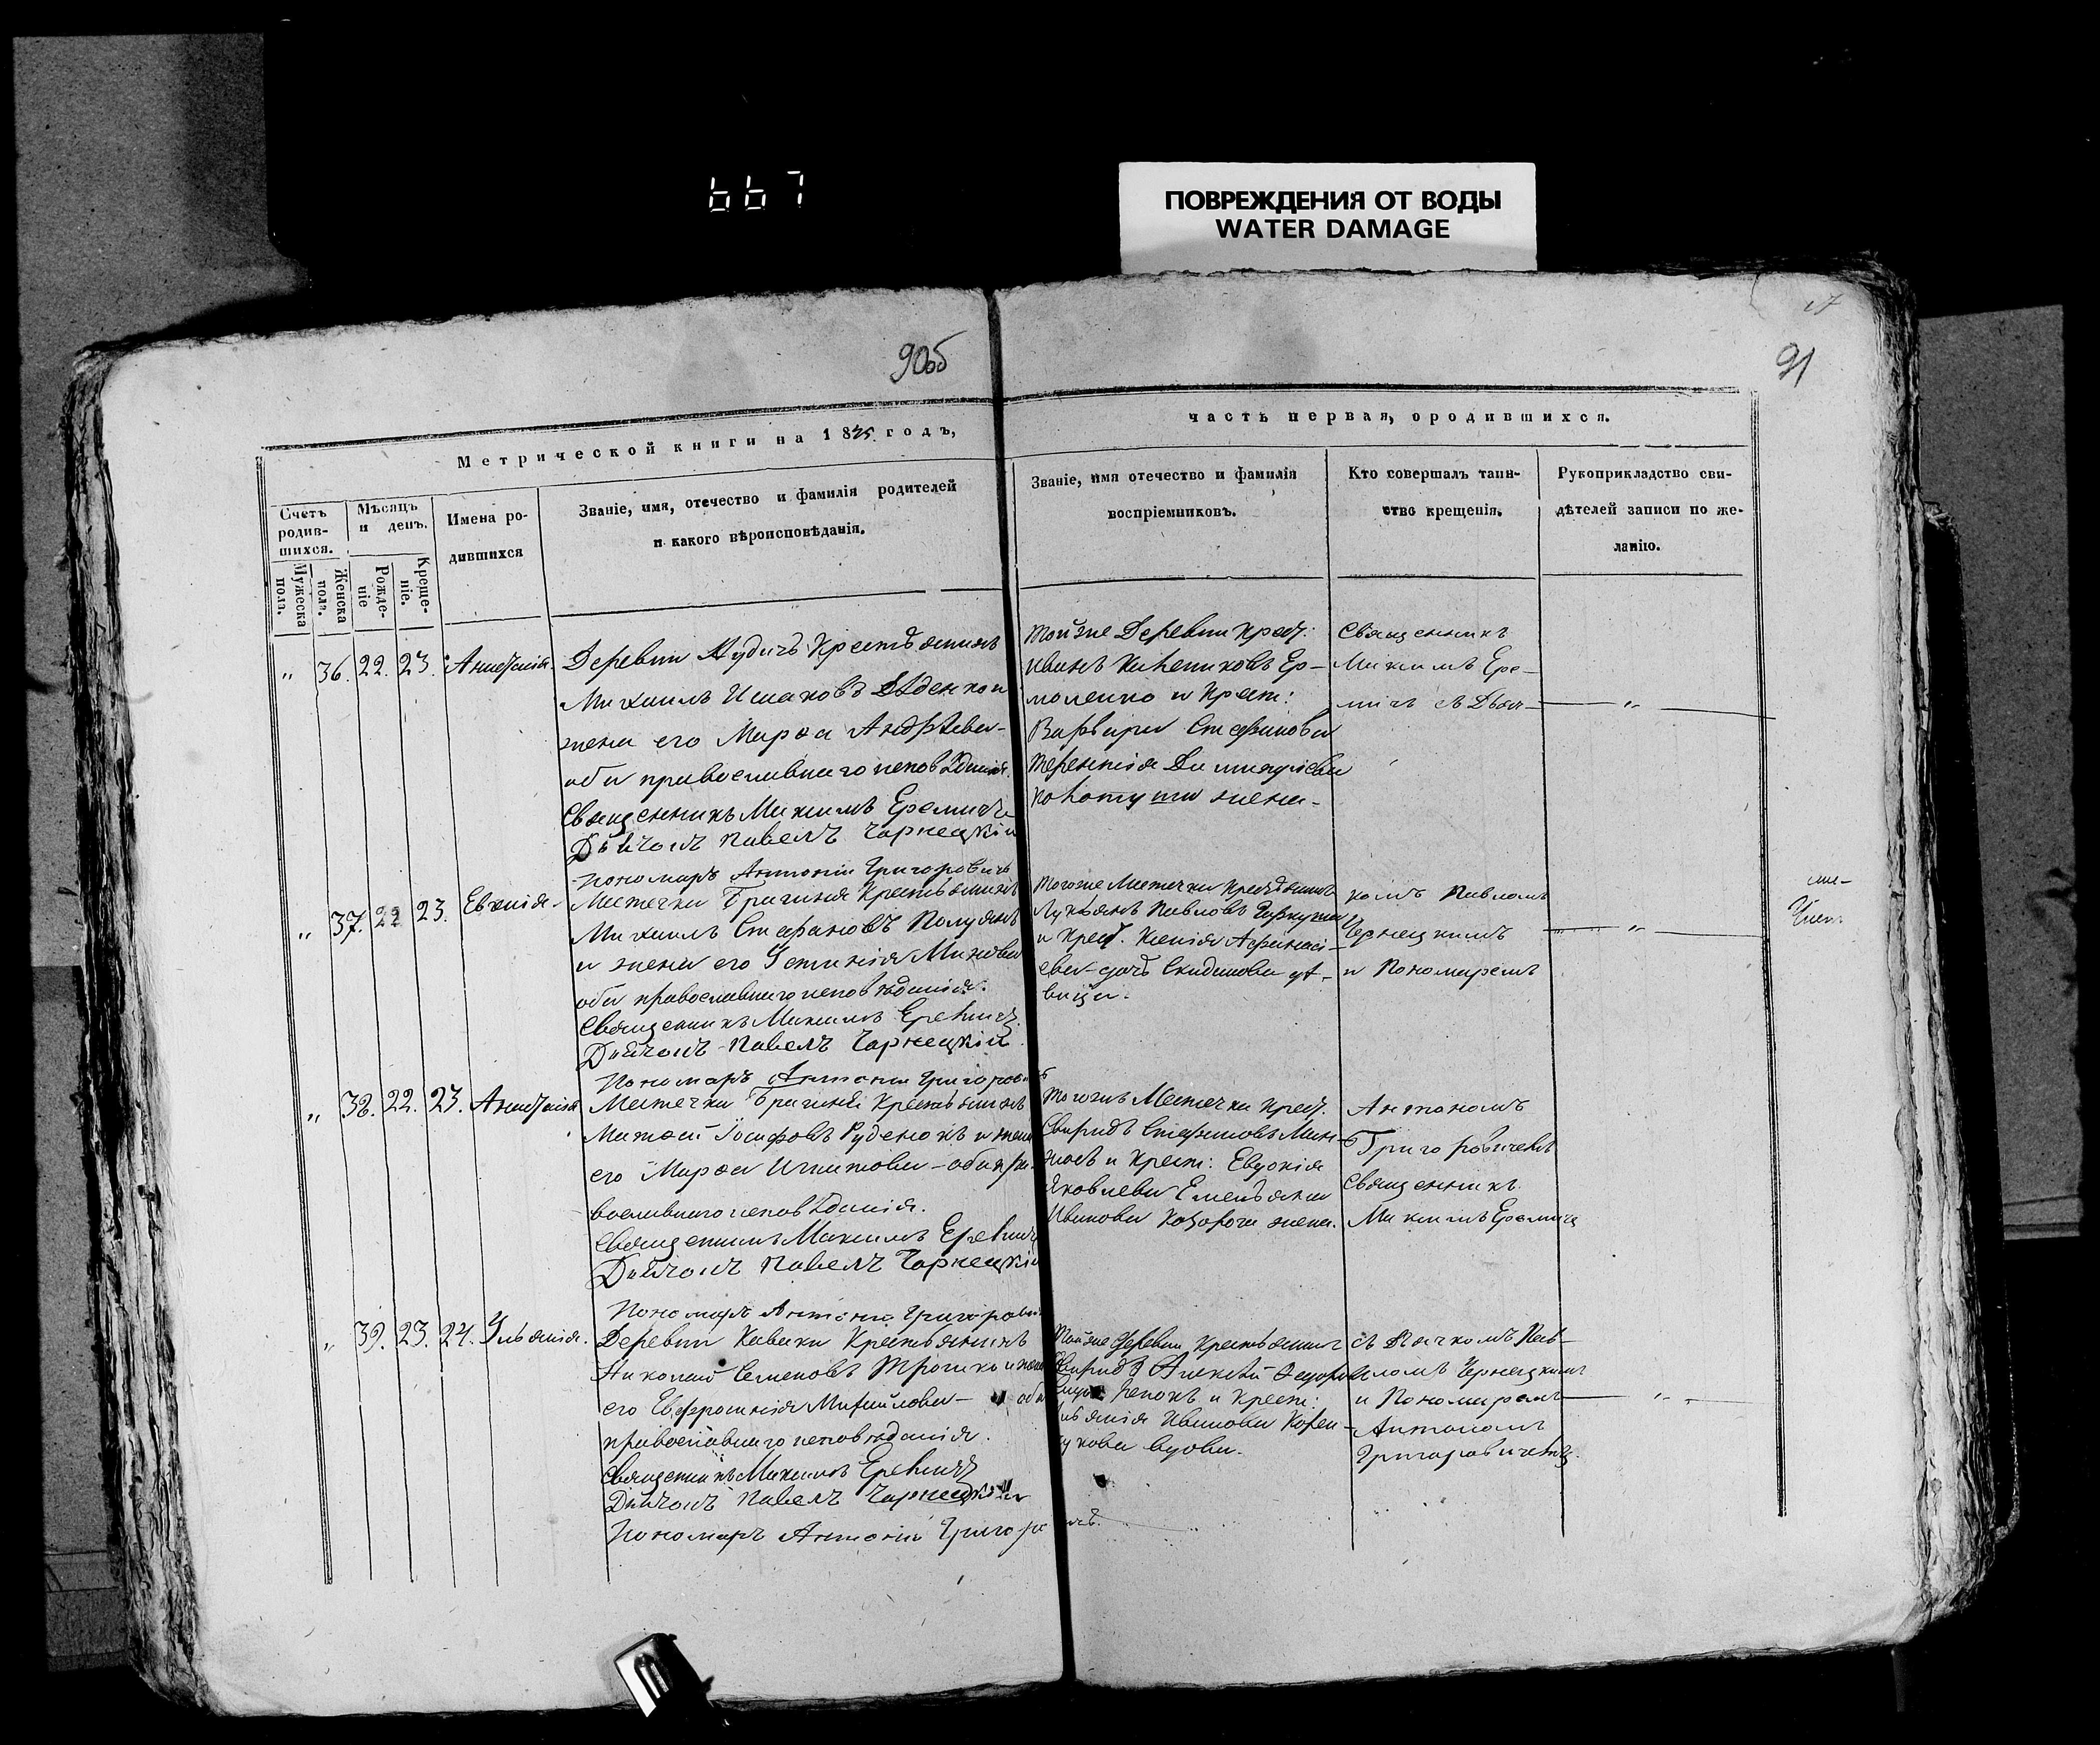 667
ПОВРЕЖДЕНИЯ ОТ ВОДЫ
WATER DAMAGE
90об
91
Метрической книги на 1845 годъ,
часть первая, ородившихся.
Счетъ родив-шихся.
Мужеска пола.
Женска пола.
Мѣсяцъ и день.
Рожде-ніе
Креще-ніе.
Имена ро-
дившихся
Званіе, имя, отечество и фамилія родителей
и какого вѣроисповѣданія.
Званіе, имя отечество и фамилія
воспріемниковъ.
Кто совершалъ таин-
ство крещенія.
Рукоприкладство сви-
дѣтелей записи по же-
ланію.
" 36. 22. 23. Анастасія.
Деревни Крестьянинъ
Михаилъ Исаковъ и
жена его Марѳа Андрѣева-
оба православнаго исповѣданія.
Священникъ Максимъ Еремичъ
Дьячокъ Павелъ Чарнецкій
Пономарь Антоній Григоровичъ
тойже Деревни Крест:
Иванъ Ер-
моленко и Крест:
Варвара Стефанова
Терентія
жена-
Священникъ
Максимъ Ере-
мичъ съ Дьяч-
"
" 37. 22 23. Евѳимія-
Местечка Брагиня Крестьянинъ
Михаилъ Стефановъ Полуянъ
и жена его Устинія
оба православнаго исповѣданія.
Священникъ Максимъ Еремичъ
Дьячокъ Павелъ Чарнецкій
Пономарь Антоній Григоровичъ
тогоже Местечка Крестьянинъ
Лукьянъ Павловъ
и Крест. Ксенія Афанасі-
ева-дочь дѣ-
вица.
комъ Павломъ
Чернецкимъ
и Пономаремъ
"
" 38. 22. 23. Анастасія
Местечка Брагиня Крестьянинъ
Матѳей Іосифовъ Руденокъ и жена
его Марѳа Игнатова-оба пра-
вославнаго исповѣданія.
Священникъ Максимъ Еремичъ
Дьячокъ Павелъ Чарнецкій
Пономарь Антоній Григорович
тогожъ Местечка Крест.
Свиридъ Стефановъ
и Крест: Евдокія
Яковлева Емельяна
Иванова жена.
Антономъ
Григоровичемъ
Священникъ
Максимъ Еремичъ
" 39. 23. 24. Ульянія.
Деревни Каваки Крестьянинъ
Николай Семеновъ Трошко и жена
его Евфросинія Михайлова- оба
православнаго исповѣданія.
Священникъ Максимъ Еремичъ
Дьячокъ Павелъ Чарнецкій
Пономарь Антоній Григоровичъ.
тойже Деревни Крестьянинъ
Алексѣй
и Крест:
Иванова
вдова.
съ Дьячкомъ Пав-
ломъ Чернецкимъ
и Пономаремъ
Антономъ
Григоровичемъ.
"